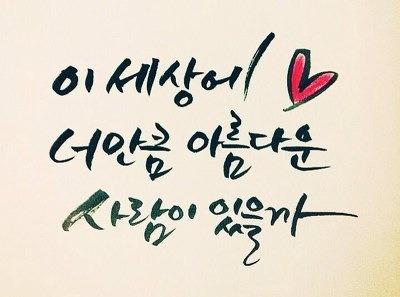 이 세상에
너만큼 아름다운
사람이 있을까